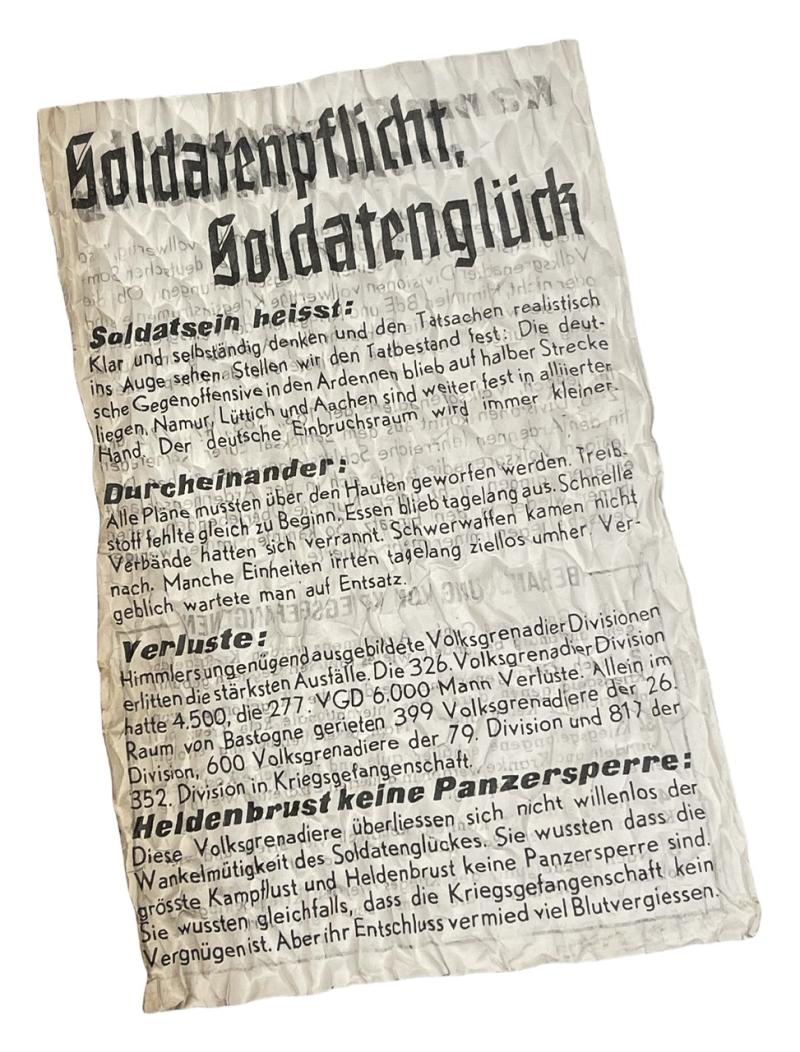 Soldatenpflicht,
Soldatenglück
Soldatsein heisst:
Klar und selbständig denken und den Tatsachen realistisch
ins Auge sehen. Stellen wir den Tatbestand fest: Die deut-
sche Gegenoffensive in den Ardennen blieb auf halber Strecke
liegen. Namur, Lüttich und Aachen sind weiter fest in alliierter
Hand. Der deutsche Einbruchsraum wird immer kleiner.
Durcheinander:
Alle Pläne mussten über den Haufen geworfen werden. Treib-
stoff fehlte gleich zu Beginn. Essen blieb tagelang aus. Schnelle
Verbände hatten sich verrannt. Schwerwaffen kamen nicht
nach. Manche Einheiten irrten tagelang ziellos umher. Ver-
geblich wartete man auf Entsatz.
Verluste:
Himmlers ungenügend ausgebildete Volksgrenadier Divisionen
erlitten die stärksten Ausfälle. Die 326. Volksgrenadier Division
hatte 4.500, die 277. VGD 6.000 Mann Verluste. Allein im
Raum von Bastogne gerieten 399 Volksgrenadiere der 26.
Division, 600 Volksgrenadiere der 79. Division und 817 der
352. Division in Kriegsgefangenschaft.
Heldenbrust keine Panzersperre:
Diese Volksgrenadiere überliessen sich nicht willenlos der
Wankelmütigkeit des Soldatenglückes. Sie wussten dass die
grösste Kampflust und Heldenbrust keine Panzersperre sind.
Sie wussten gleichfalls, dass die Kriegsgefangenschaft kein
Vergnügen ist. Aber ihr Entschluss vermied viel Blutvergiessen.